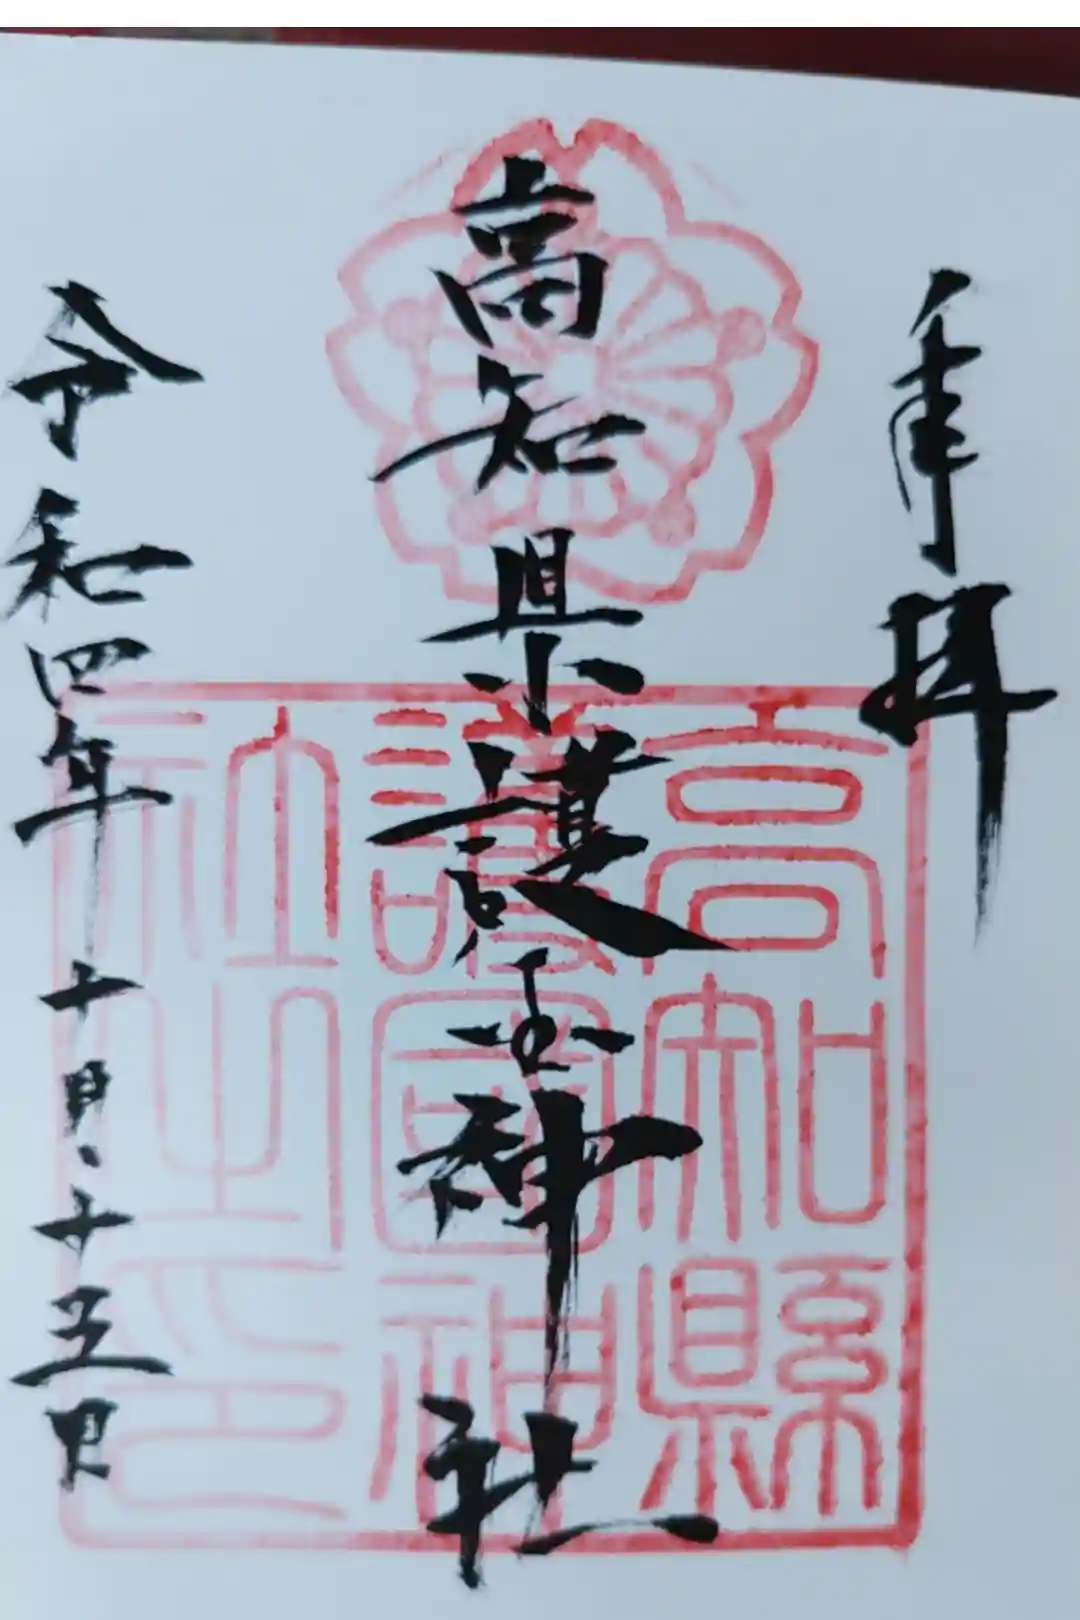 奉拝
高知県護国神社
令和四年十月十五日
高知縣
護國神
社之印